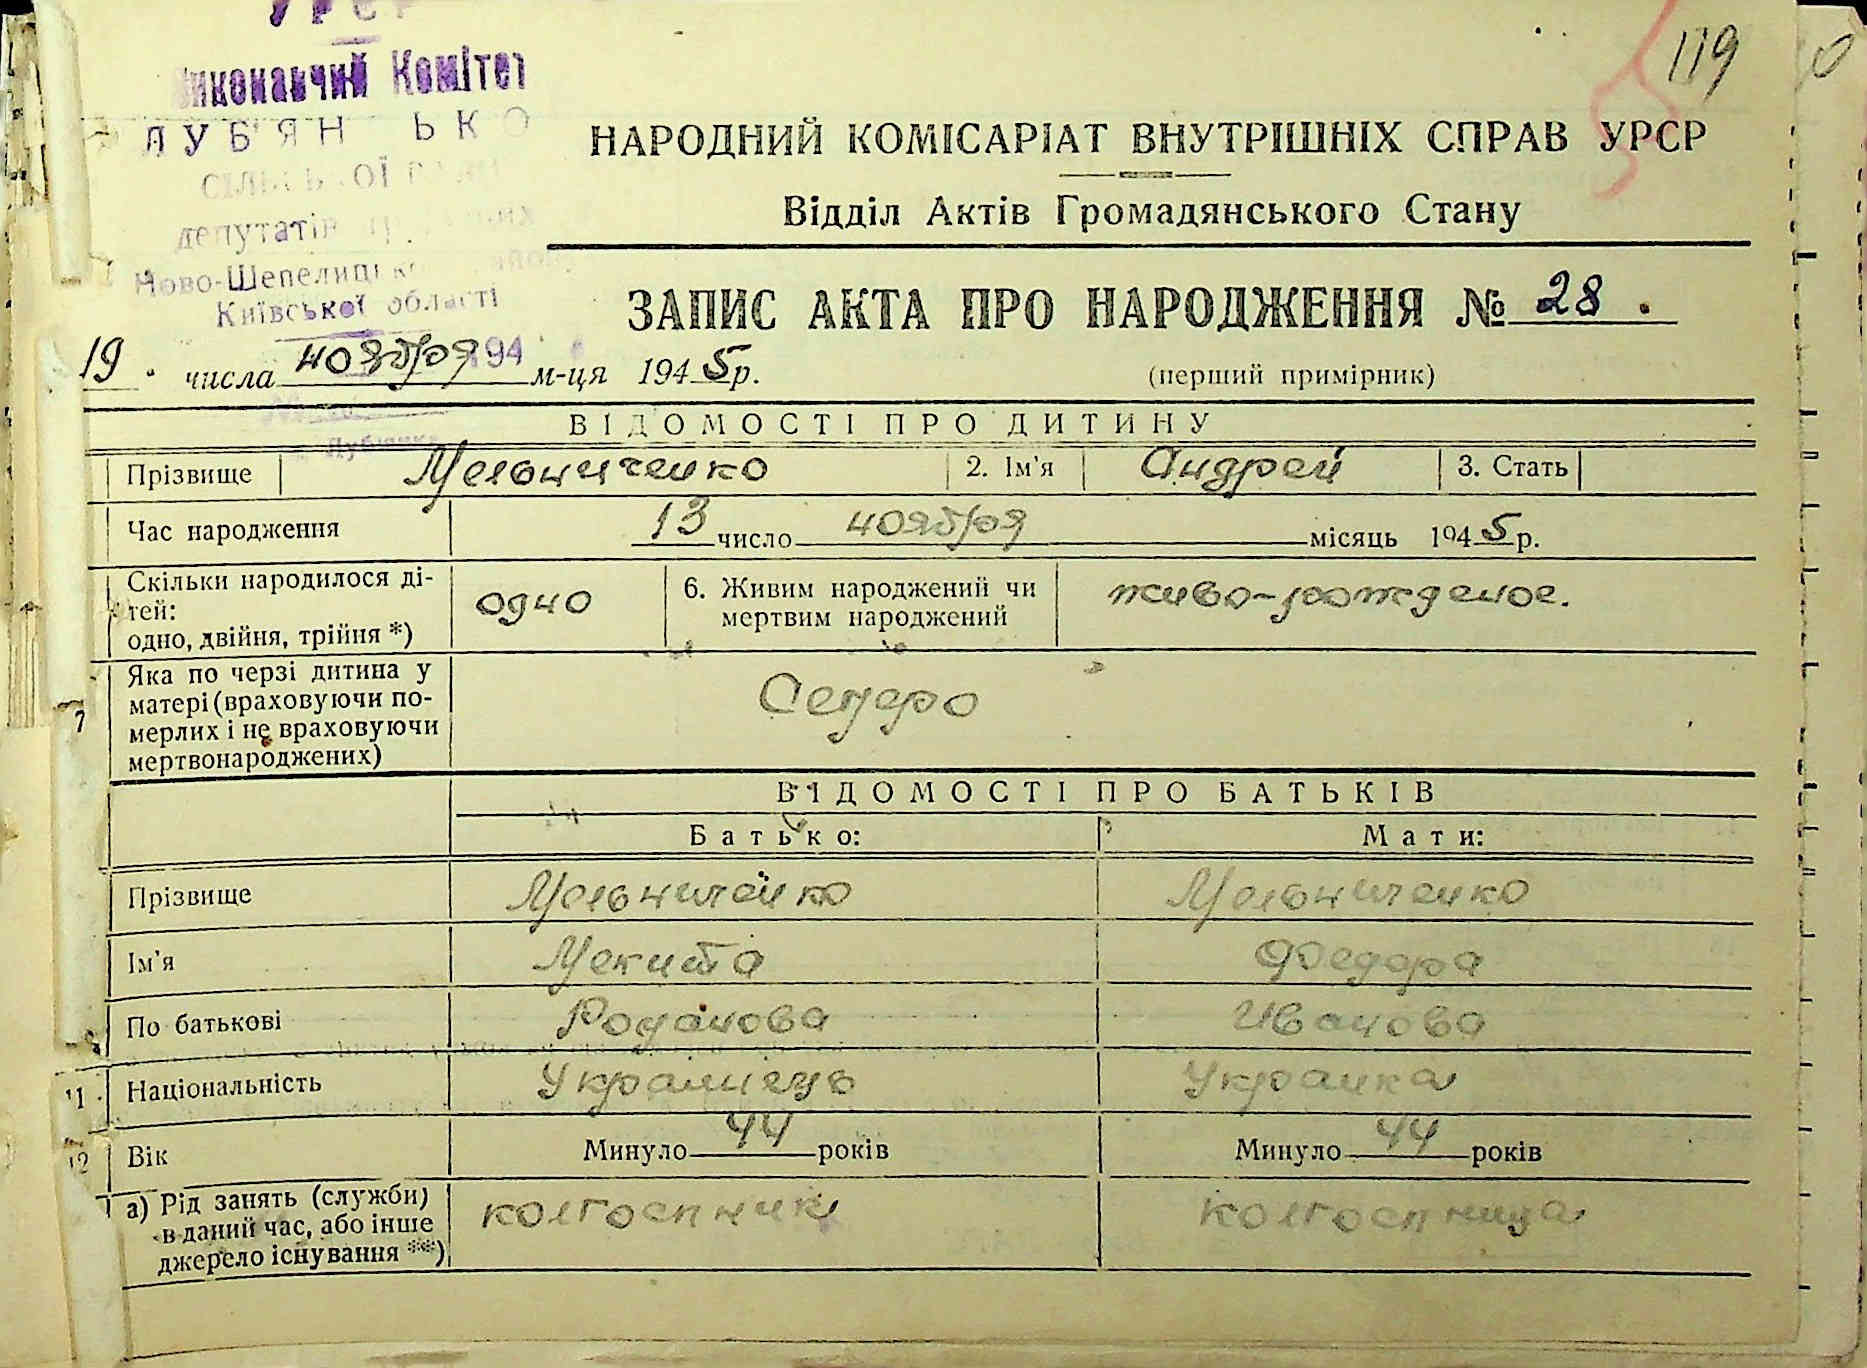 УРСР
Виконавчий Комітет
ЛУБ'ЯНСЬКО
СІЛЬСЬКОЇ РАДИ
депутатів трудящих
Ново-Шепелицького району
Київської області
194
119
НАРОДНИЙ КОМІСАРІАТ ВНУТРІШНІХ СПРАВ УРСР
Відділ Актів Громадянського Стану
ЗАПИС АКТА ПРО НАРОДЖЕННЯ № 28.
19. числа ноября м-ця 1945 р.
(перший примірник)
ВІДОМОСТІ ПРО ДИТИНУ
Прізвище Мельниченко 2. Ім'я Андрей 3. Стать
Час народження 13 число ноября місяць 1945 р.
Скільки народилося ді-
тей:
одно, двійня, трійня *)
одно
6. Живим народжений чи
мертвим народжений
живо-рожденое.
7
Яка по черзі дитина у
матері (враховуючи по-
мерлих і не враховуючи
мертвонароджених)
Семеро
ВІДОМОСТІ ПРО БАТЬКІВ
Батько: Мати:
Прізвище Мельниченко Мельниченко
Ім'я Мекита Федора
По батькові Романова Иванова
11. Національність Украинець Украинка
12 Вік Минуло 44 років Минуло 44 років
а) Рід занять (служби)
в даний час, або інше
джерело існування **)
колгоспник колгоспница